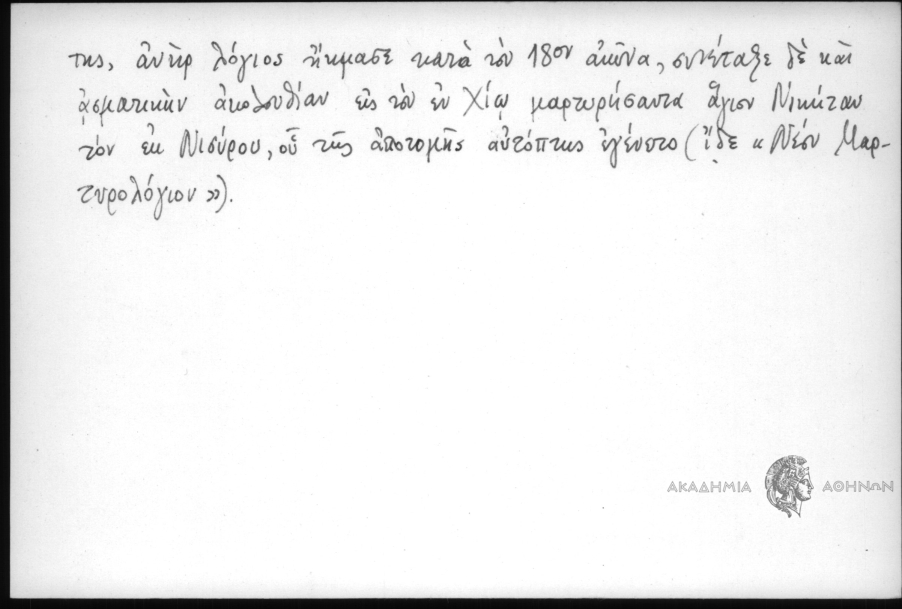 της, ἀνὴρ λόγιος ἤκμασε κατὰ τὸν 18ον αἰῶνα, συνέταξε δὲ καὶ
ᾀσματικὴν ἀκολουθίαν εἰς τὸν ἐν Χίῳ μαρτυρήσαντα ἅγιον Νικήταν
τὸν ἐκ Νισύρου, οὗ τῆς ἀποτομῆς αὐτόπτης ἐγένετο (ἴδε « Νέον Μαρ-
τυρολόγιον »).
ΑΚΑΔΗΜΙΑ ΑΘΗΝΩΝ